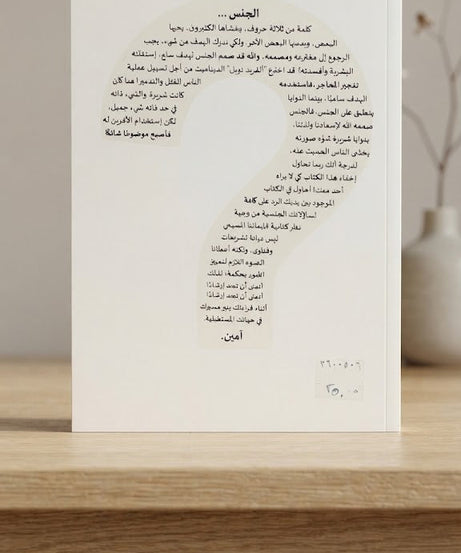 الجنس ...
كلمة من ثلاثة حروف، يخشاها الكثيرون، يحبها
البعض، ويدمنها البعض الآخر. ولكي ندرك الهدف من شيء، يجب
الرجوع إلى مخترعه ومصممه. والله قد صمم الجنس لهدف سامٍ، إستغلته
البشرية وأفسدته! قد اخترع "ألفريد نوبل" الديناميت من أجل تسهيل عملية
تفجير المحاجر، فاستخدمه الناس للقتل والتدمير! هنا كان
الهدف ساميًا، بينما النوايا كانت شريرة والشيء ذاته
ينطبق على الجنس. فالجنس في حد ذاته شيء جميل،
صممه الله لإسعادنا ولذتنا. لكن إستخدام الآخرين له
بنوايا شريرة شوّه صورته فأصبح موضوعًا شائكًا
يخشى الناس الحديث عنه،
لدرجة أنك ربما تحاول
إخفاء هذا الكتاب كي لا يراه
أحد معك! أحاول في الكتاب
الموجود بين يديك الرد على كافة
تساؤلاتك الجنسية من وجهة
نظر كتابية فإيماننا المسيحي
ليس ديانة تشريعات
وفتاوى، ولكنه أعطانا
الضوء اللازم لنعيش
الأمور بحكمة؛ لذلك
أتمنى أن تجد إرشادًا
أتمنى أن تجد إرشادًا
أثناء قراءتك ينير مسيرتك
في حياتك المستقبلية.
آمين.
٢٥,٠٠